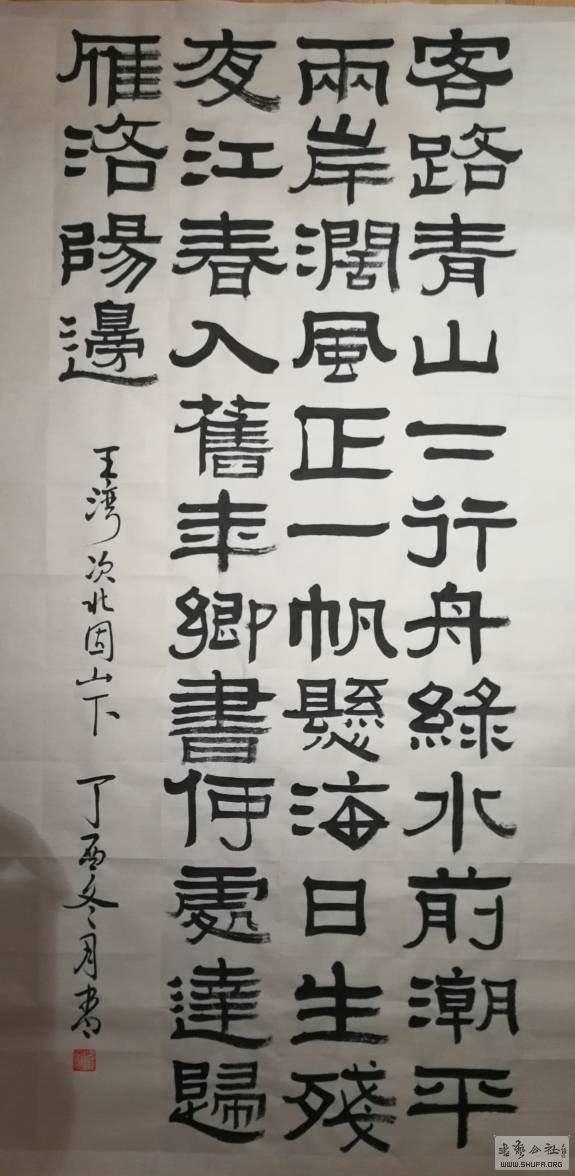 客路青山二行舟綠水前潮平
兩岸濶風正一帆懸海日生殘
夜江春入舊年鄉書何處達歸
雁洛陽邊
王湾次北固山下 丁酉冬月書
書藝公社
WWW.SHUFA.ORG